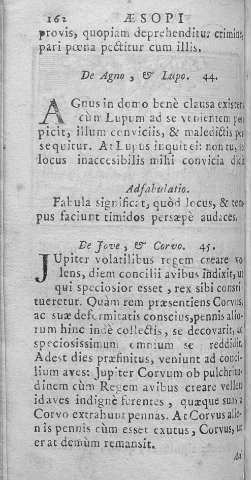 162 ÆSOPI
provis, quopiam deprehenditur crimine,
pari pœna pectitur cum illis.
De Agno, & Lupo. 44.
AGnus in domo benè clausa existens
cùm Lupum ad se venientem per
picit, illum conviciis, & maledictis per
sequitur. At Lupus inquit ei: non tu,
locus inaccesibilis mihi convicia dici
Adfabulatio.
Fabula significat, quòd locus, & tem
pus faciunt timidos persæpè audaces.
De Jove, & Corvo. 45.
JUpiter volatilibus regem creare vo
lens, diem concilii avibus indixit, ut
qui speciosior esset, rex sibi consti
tueretur. Quàm rem præsentiens Corvus,
ac suæ deformitatis conscius, pennis alio
rum hinc indè collectis, se decoravit, ac
speciosissimum omnium se reddidit.
Adest dies præfinitus, veniunt ad conci-
lium aves: Jupiter Corvum ob pulchritu
dinem cùm Regem avibus creare vellet
id aves indignè ferentes, quæque suam
Corvo extrahunt pennas. At Corvus alie-
nis pennis cùm esset exutus, Corvus, ut
er at demùm remansit.